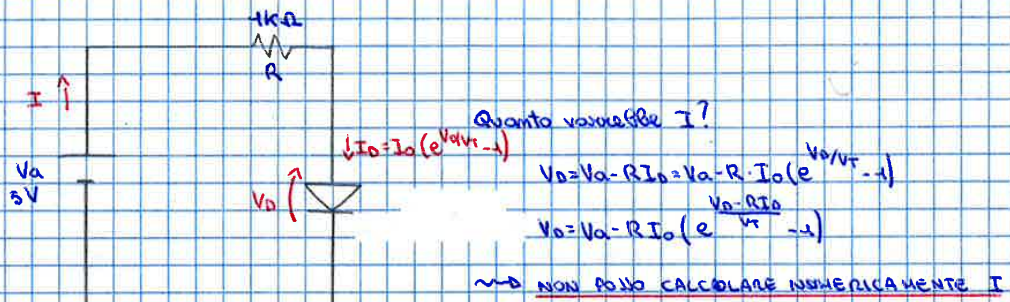 1KΩ
R
I
Va
5V
I_D=I_0(e^{V_D/V_T}-1)
V_D
Quanto varrebbe I?
V_D=Va-RI_D=Va-R·I_0(e^{V_D/V_T}-1)
V_D=Va-RI_0(e^{\frac{V_D-RI_D}{V_T}}-1)
~~> NON POSSO CALCOLARE NUMERICAMENTE I